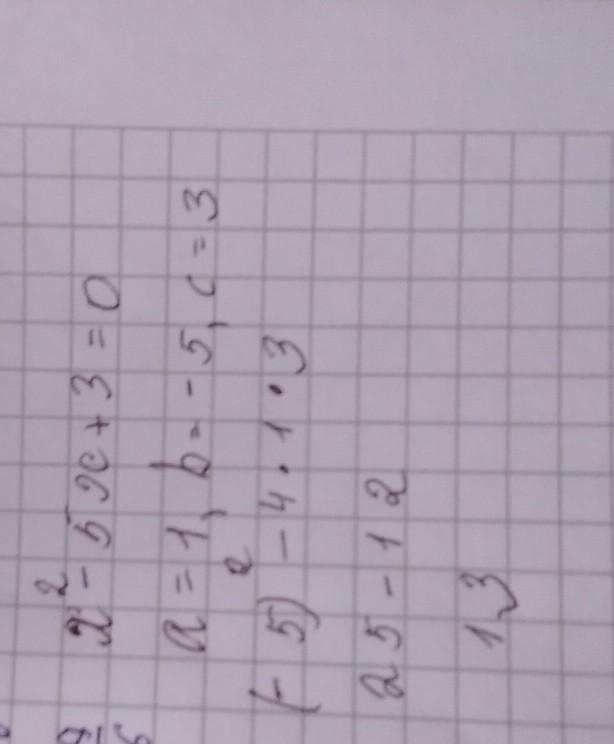 x² - 5x + 3 = 0
a = 1, b = - 5, c = 3
(- 5)² - 4 · 1 · 3
25 - 12
13